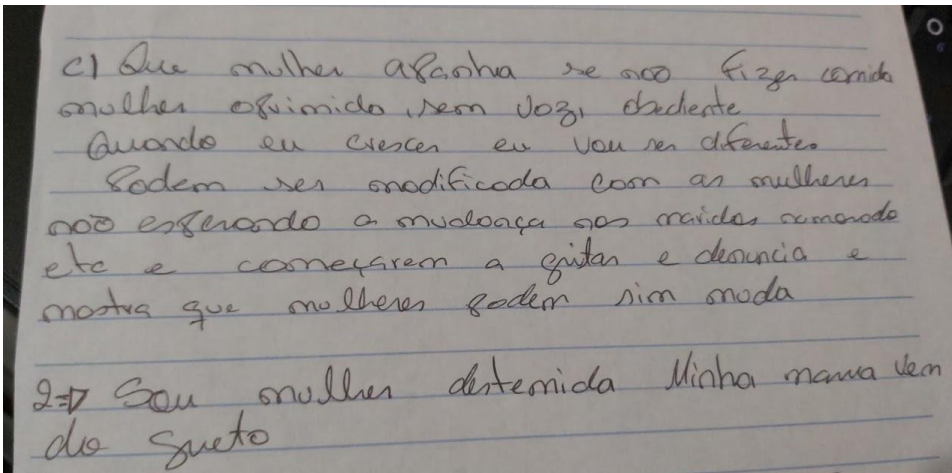 c) Que mulher apanha se não fizer comida
mulher oprimida, sem voz, obediente
Quando eu crescer eu vou ser diferente.
Podem ser modificada com as mulheres
não esperando a mudança nos maridos namorado
etc e começarem a gritar e denuncia e
mostra que mulheres podem sim muda
2=> Sou mulher destemida Minha marra vem
do gueto